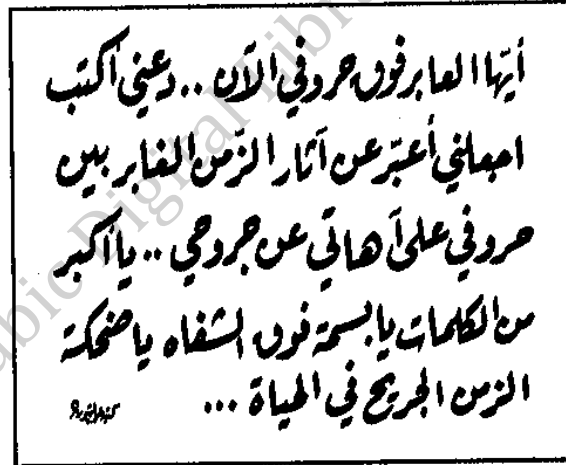 أيّها العابر فوق حروفي الآن .. دعني أكتب
اجعلني أعبّر عن آثار الزّمن الغابر بين
حروفي على آهاتي عن جروحي .. يا أكبر
من الكلمات يا بسمة فوق الشفاه يا ضحكة
الزمن الجريح في الحياة ...
Arabic Digital Libr